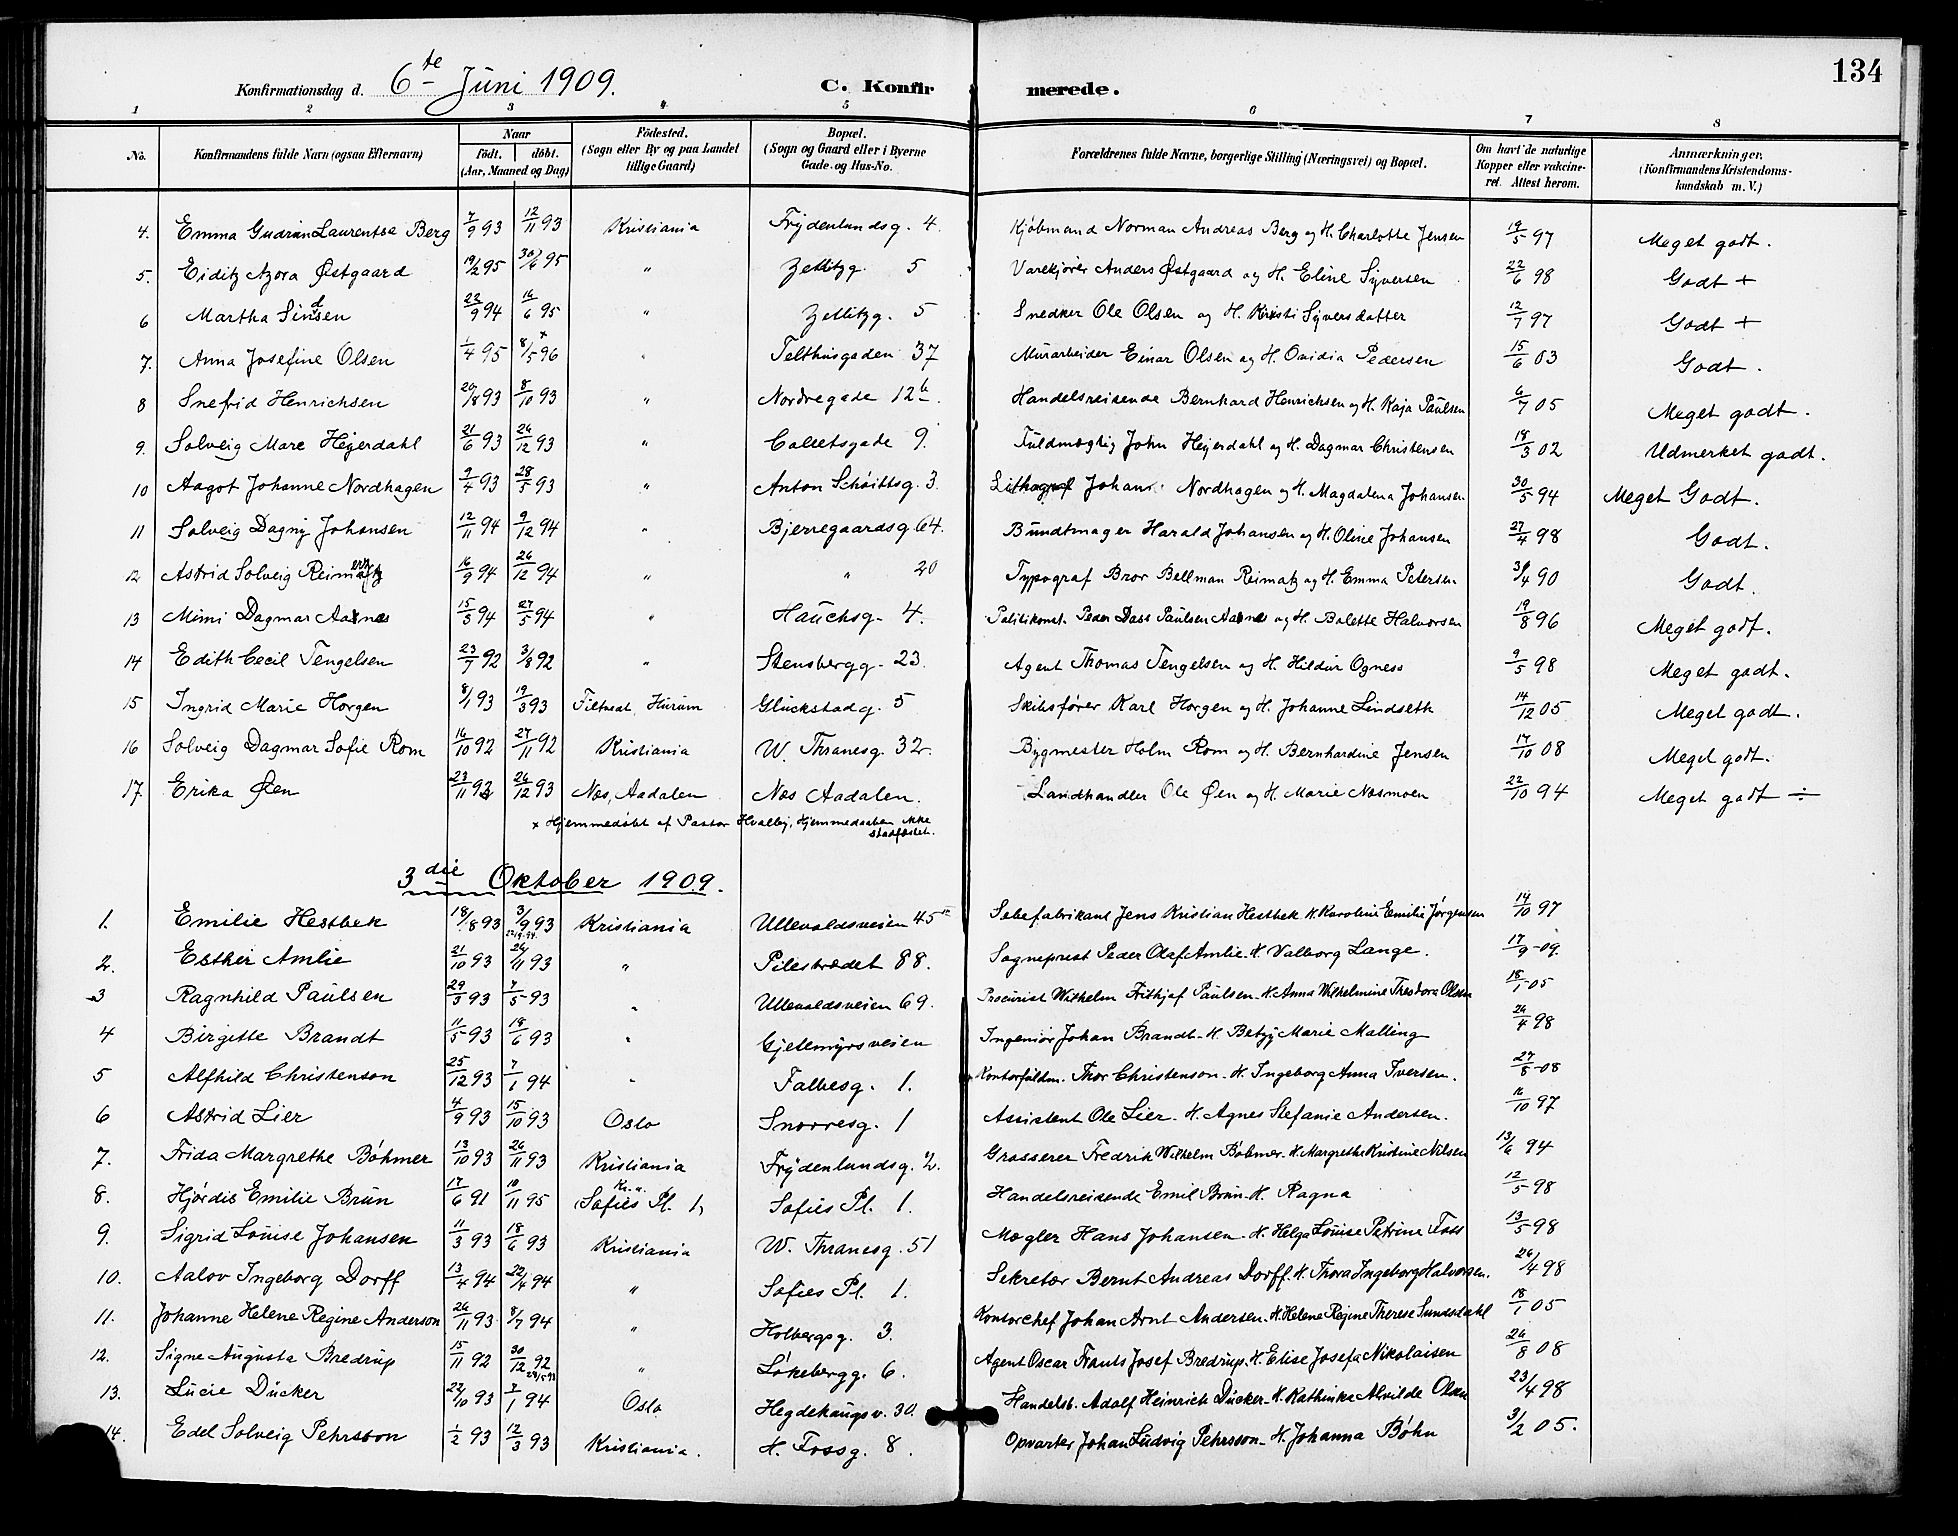 134
Konfirmationsdag d. 6te Juni 1909. C. Konfirmerede.
1 2 3 4 5 6 7 8
No. Konfirmandens fulde Navn (ogsaa Efternavn) Naar født. døbt. (Aar, Maaned og Dag) Fødested. (Sogn eller By og paa Landet tillige Gaard) Bopæl. (Sogn og Gaard eller i Byerne Gade- og Hus-No. Forældrenes fulde Navne, borgerlige Stilling (Næringsvei) og Bopæl. Om havt de naturlige Kopper eller vakcineret. Attest herom. Anmærkninger. (Konfirmandens Kristendomskundskab m. V.)
4. Emma Gudrun Laurentse Berg 7/9 93 12/11 93 Kristiania Frydenlundsg. 4. Kjøbmand Norman Andreas Berg og H. Charlotte Jensen 19/5 97 Meget godt.
5. Eiditz Azora Østgaard 19/2 95 30/6 95 " Zetlitzg. 5 Varekjører Anders Østgaard og H. Eline Syversen 22/6 98 Godt +
6 Martha Sindsen 22/9 94 16/6 95 " Zetlitzg. 5 Snedker Ole Olsen og H. Kristi Syversdatter 12/7 97 Godt +
7. Anna Josefine Olsen 1/4 95 8/5 96 x " Telthusgaden 37 Murarbeider Einar Olsen og H. Ovidia Pedersen 15/6 03 Godt.
8 Snefrid Henrichsen 20/8 93 8/10 93 " Nordregade 12b. Handelsreisende Bernhard Henrichsen og H. Kaja Paulsen 6/7 05 Meget godt.
9. Solveig Mare Heyerdahl 21/6 93 26/12 93 " Colletsgade 9. Fuldmægtig John Heyerdahl og H. Dagmar Christensen 18/3 02 Udmerket godt.
10 Aagot Johanne Nordhagen 9/4 93 28/5 93 " Anton Schøittsg. 3. Lithograf Johan Nordhagen og H. Magdalena Johansen 30/5 94 Meget Godt.
11 Solveig Dagny Johansen 12/11 94 9/12 94 " Bjerregaardsg 64. Bundtmager Harald Johansen og H. Oline Johansen 27/4 98 Godt.
12 Astrid Solveig 16/9 94 26/12 94 " " 20 Typograf Bror Bellman Reimatz og H. Emma Petersen /4 90 Godt.
13 Mimi Dagmar Aarnes 15/3 94 27/5 94 " Hauchsg. 4. Politikonst. Peder Dass Paulsen Aarnes og H. Bolette Halvorsen 19/8 96 Meget godt.
14 Edith Cecil Tengelsen 23/7 92 3/8 92 " Stensbergg. 23. Agent Thomas Tengelsen og H. Hildur Ogness 9/5 98 Meget godt.
15 Ingrid Marie Horgen 8/1 93 19/3 93 Filtvet, Hurum Glückstadg. 5 Skibsfører Karl Horgen og H. Johanne Lindseth 14/12 05 Meget godt.
16 Solveig Dagmar Sofie Rom 16/10 92 27/11 92 Kristiania W. Thranesg. 32. Bygmester Holm Rom og H. Bernhardine Jensen 17/10 08 Meget godt.
17. Erika Øen 23/11 93 26/12 93 Nes, Aadalen Nes Aadalen. Landhandler Ole Øen og H. Marie Nasmoen 22/10 94 Meget godt ÷
x Hjemmedøbt af Pastor Hvalby, Hjemmedaaben ikke
stadfæstet.
3die Oktober 1909.
1. Emilie Hestbek 18/8 93 3/9 93 Kristiania Ullevoldsveien 45 Sæbefabrikant Jens Kristian Hestbek H. Karoline Emilie Jørgensen 14/10 97
2. Esther Amlie 21/10 93 26/11 93 " Pilestrædet 88. Sogneprest Peder Olaf Amlie. H. Valborg Lange. 17/9 -09.
3 Ragnhild Paulsen 29/3 93 7/5 -93 " Ullevoldsveien 69. Procurist Wilhelm Frithjof Paulsen. H. Anna Wilhelmine Theodora Olsen 18/1 -05
4 Birgitte Brandt 11/5 93 18/6 93 " Gjetemyrsveien Ingeniør Johan Brandt. H. Betzy Marie Malling 26/4 98
5 Alfhild Christenson 25/12 93 7/1 94 " Falbesg. 1. Kontorfuldm. Thor Christenson. H. Ingeborg Anna Iversen. 27/8 -08
6 Astrid Lier 4/9 93 15/10 93 Oslo Snorresg. 1 Assistent Ole Lier. H. Agnes Stefanie Andersen. 16/10 97
7. Frida Margrethe Bøhmer 13/10 93 26/11 93 Kristiania Frydenlundsg. 2. Grosserer Fredrik Wilhelm Bøhmer. H. Margrethe Kristine Nilsen 13/6 94
8. Hjørdis Emilie Brun 17/6 91 10/11 95 Kr.a. (Sofies Pl. 1) Sofies Pl. 1. Handelsreisende Emil Brun. H. Ragna 12/5 -98
9. Sigrid Louise Johansen 11/3 93 18/6 93 Kristiania W. Thranesg. 51 Mægler Hans Johansen. H. Helga Louise Petrine Foss 13/5 98
10. Aalov Ingeborg Dorff 13/4 94 22/4 94 " Sofies Pl. 1. Sekretær Bernt Andreas Dorff. H. Thora Ingeborg Halvorsen. 26/4 98
11. Johanne Helene Regine Anderson 26/11 93 8/7 94 " Holbergsg. 3. Kontorchef Johan Arnt Andersen. H. Helene Regine Therese Sundsdahl 18/1 05
12. Signe Augusta Bredrup 15/11 92 30/12 92 " Løkebergg. 6. Agent Oscar Frants Josef Bredrup. H. Elise Josefa Nikolaisen 26/8 08
13. Lucie Dücker 22/10 93 7/1 94 Oslo Hegdehaugsv. 30. Handelsb. Adolf Heinrich Dücker. H. Kathinka Alvilde Olsen 23/4 98
14. Edel Solveig Pehrsson 1/2 93 12/3 93 Kristiania. H. Fossg. 8. Opvarter Johan Ludvig Pehrsson. H. Johanna Bøhn 3/2 05.